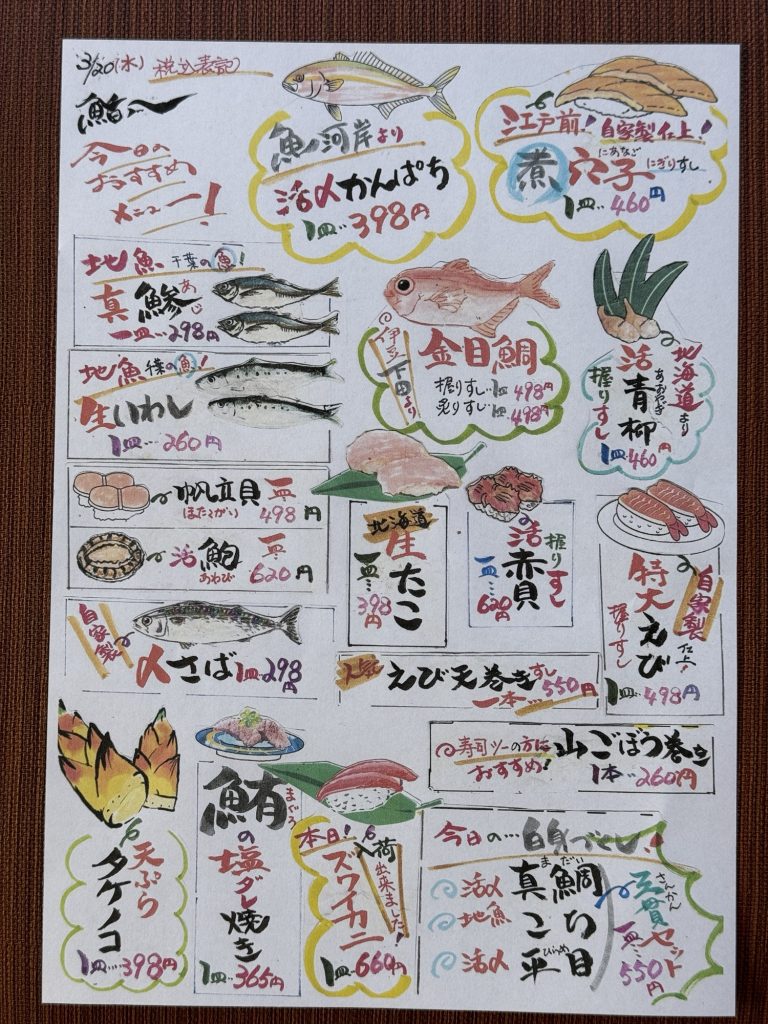 3/20(水) 税込表記
鮨
今日の
おすすめ
メニュー!
魚河岸より
活〆かんぱち
1皿…398円
江戸前!自家製仕上!
にあなご
煮穴子にぎりすし
1皿…460円
地魚 千葉の魚!
真鯵 あじ
一皿…298円
地魚 千葉の魚!
生いわし
1皿…260円
伊豆下田より
金目鯛
握りすし…1皿498円
炙りすし…1皿498円
北海道より
活青柳 あおやぎ
握りすし
1皿…460円
帆立貝 一皿…
ほたてがい 498円
活鮑 一皿…
あわび 620円
北海道
生たこ
一皿…398円
活赤貝
握りすし
一皿…620円
自家製仕上!
特大えび
握りすし
1皿…498円
自家製
〆さば1皿…298円
人気 えび天巻きすし
一本…550円
寿司ツーの方に
おすすめ!
山ごぼう巻き
1本…260円
天ぷら
タケノコ
1皿…398円
鮪 まぐろ
の塩ダレ焼き
1皿…365円
本日!入荷出来ました!
ズワイカニ
1皿…660円
今日の…白身づくし!
活〆 真鯛 まだい
地魚 こち
活〆 平目 ひらめ
三貫セット さんかん
一皿…550円